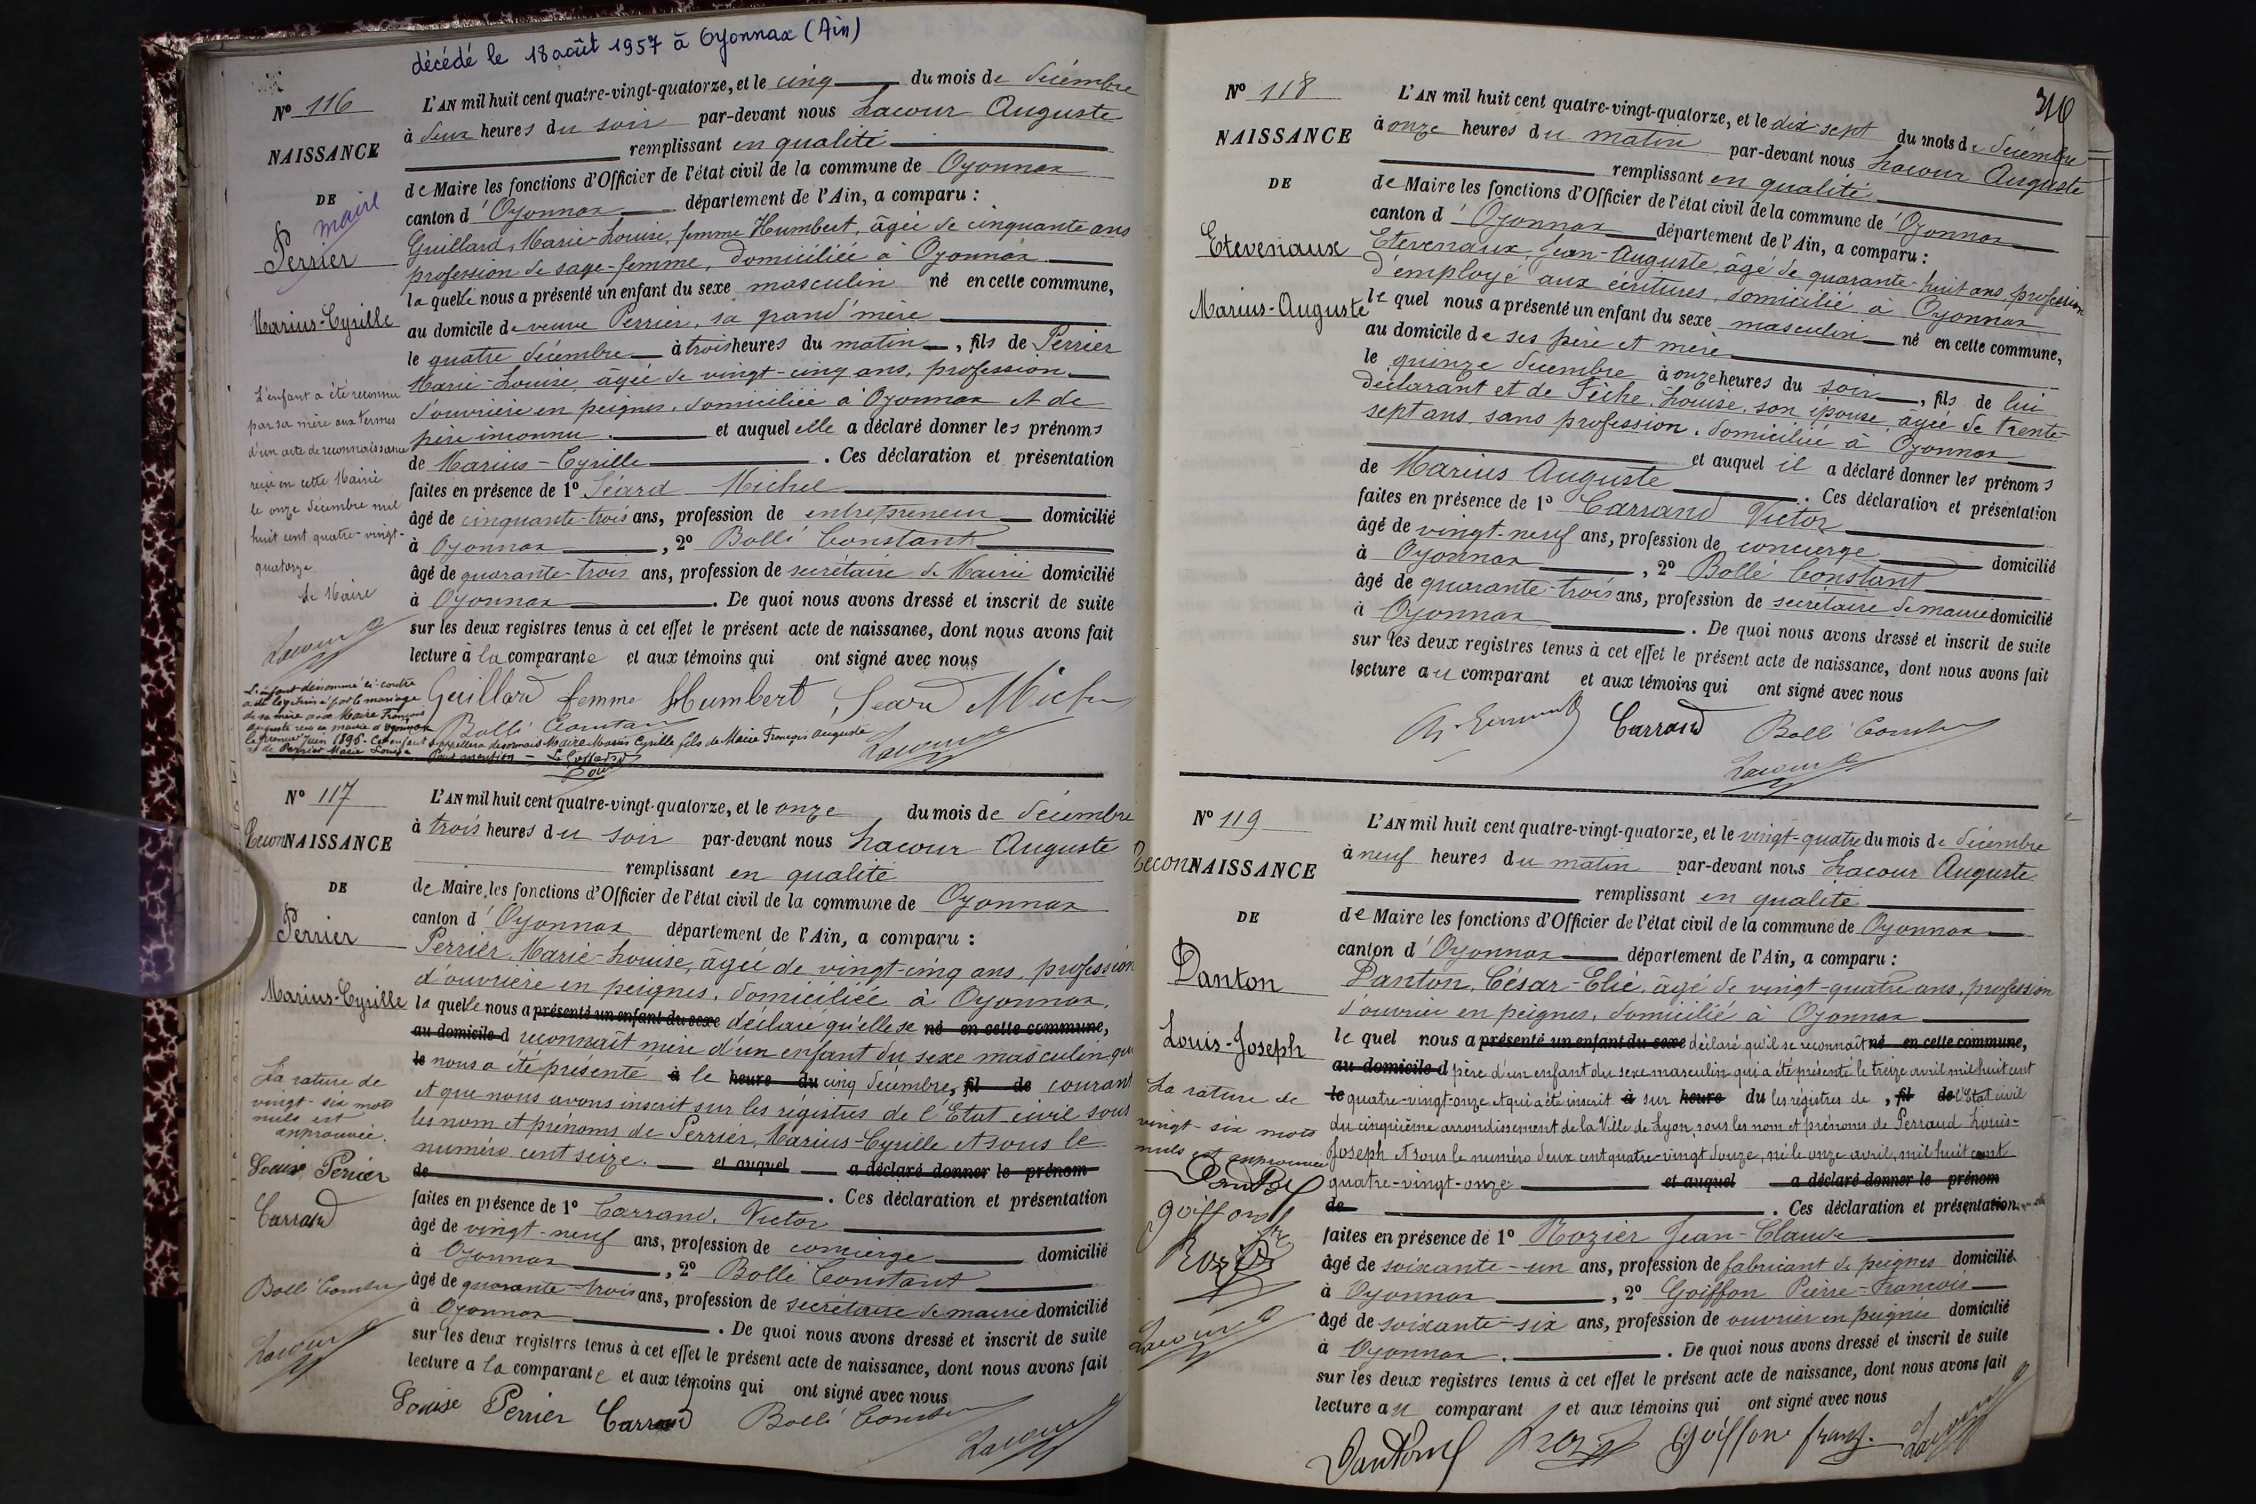 décédé le 18 août 1957 à Oyonnax (Ain)
Nº 116
NAISSANCE
DE
maire
Perrier
Marius-Cyrille
L'enfant a été reconnu
par sa mère aux termes
d'un acte de reconnaissance
reçu en cette Mairie
le onze décembre mil
huit cent quatre-vingt-
quatorze
Le Maire
Lacour A
L'AN mil huit cent quatre-vingt-quatorze, et le cinq du mois de décembre
à deux heures du soir par-devant nous Lacour Auguste
remplissant en qualité
de Maire les fonctions d'Officier de l'état civil de la commune de Oyonnax
canton d'Oyonnax département de l'Ain, a comparu :
Guillard, Marie-Louise, femme Humbert, âgée de cinquante ans
profession de sage-femme, domiciliée à Oyonnax
la quelle nous a présenté un enfant du sexe masculin né en cette commune,
au domicile de veuve Perrier, sa grand'mère
le quatre décembre à trois heures du matin, fils de Perrier
Marie-Louise, âgée de vingt-cinq ans, profession
d'ouvrière en peignes, domiciliée à Oyonnax et de
père inconnu. et auquel elle a déclaré donner les prénoms
de Marius-Cyrille. Ces déclaration et présentation
faites en présence de 1º Séard Michel
âgé de cinquante-trois ans, profession de entrepreneur domicilié
à Oyonnax, 2º Bollé Constant
âgé de quarante-trois ans, profession de secrétaire de Mairie domicilié
à Oyonnax. De quoi nous avons dressé et inscrit de suite
sur les deux registres tenus à cet effet le présent acte de naissance, dont nous avons fait
lecture à la comparante et aux témoins qui ont signé avec nous
Guillard femme Humbert Seard Michel
Bollé Constant
Lacour A
L'enfant dénommé ci-contre
a été légitimé par le mariage
de sa mère avec Maire François
Auguste reçu en mairie d'Oyonnax
le premier Juin 1895. Cet enfant s'appellera désormais Maire Marius Cyrille fils de Maire François Auguste
et de Perrier Marie Louise Pour mention
Nº 117
ReconNAISSANCE
DE
Perrier
Marius-Cyrille
La rature de
vingt-six mots
nuls est
approuvée.
Louise Perrier
Carrand
Bollé Constant
Lacour A
L'AN mil huit cent quatre-vingt-quatorze, et le onze du mois de décembre
à trois heures du soir par-devant nous Lacour Auguste
remplissant en qualité
de Maire les fonctions d'Officier de l'état civil de la commune de Oyonnax
canton d'Oyonnax département de l'Ain, a comparu :
Perrier, Marie-Louise, âgée de vingt-cinq ans, profession
d'ouvrière en peignes, domiciliée à Oyonnax,
la quelle nous a présenté un enfant du sexe déclaré qu'elle se né en cette commune,
au domicile d reconnaît mère d'un enfant du sexe masculin qui
le nous a été présenté à le heure du cinq décembre, fil de courant
et que nous avons inscrit sur les régistres de l'Etat civil sous
les nom et prénoms de Perrier, Marius-Cyrille et sous le
numéro cent seize. et auquel a déclaré donner le prénom
de . Ces déclaration et présentation
faites en présence de 1º Carrand, Victor
âgé de vingt-neuf ans, profession de concierge domicilié
à Oyonnax, 2º Bollé Constant
âgé de quarante-trois ans, profession de secrétaire de mairie domicilié
à Oyonnax. De quoi nous avons dressé et inscrit de suite
sur les deux registres tenus à cet effet le présent acte de naissance, dont nous avons fait
lecture a la comparante et aux témoins qui ont signé avec nous
Louise Perrier Carrand Bollé Constant
Lacour A
316
Nº 118
NAISSANCE
DE
Etevenaux
Marius-Auguste
L'AN mil huit cent quatre-vingt-quatorze, et le dix-sept du mois de décembre
à onze heures du matin par-devant nous Lacour Auguste
remplissant en qualité
de Maire les fonctions d'Officier de l'état civil de la commune de Oyonnax
canton d'Oyonnax département de l'Ain, a comparu :
Etevenaux, Jean-Auguste, âgé de quarante-huit ans, profession
d'employé aux écritures, domicilié à Oyonnax
le quel nous a présenté un enfant du sexe masculin né en cette commune,
au domicile de ses père et mère
le quinze décembre à onze heures du soir, fils de lui
déclarant et de Pèche, Louise, son épouse, âgée de trente-
sept ans, sans profession, domiciliée à Oyonnax
et auquel il a déclaré donner les prénoms
de Marius Auguste. Ces déclaration et présentation
faites en présence de 1º Carrand Victor
âgé de vingt-neuf ans, profession de concierge domicilié
à Oyonnax, 2º Bollé Constant
âgé de quarante-trois ans, profession de secrétaire de mairie domicilié
à Oyonnax. De quoi nous avons dressé et inscrit de suite
sur les deux registres tenus à cet effet le présent acte de naissance, dont nous avons fait
lecture au comparant et aux témoins qui ont signé avec nous
Carrand Bollé Constant
Lacour A
Nº 119
ReconNAISSANCE
DE
Danton
Louis-Joseph
La rature de
vingt-six mots
nuls est approuvée
Danton
Goiffon
Rozier
Lacour A
L'AN mil huit cent quatre-vingt-quatorze, et le vingt-quatre du mois de décembre
à neuf heures du matin par-devant nous Lacour Auguste
remplissant en qualité
de Maire les fonctions d'Officier de l'état civil de la commune de Oyonnax
canton d'Oyonnax département de l'Ain, a comparu :
Danton, César-Elie, âgé de vingt-quatre ans, profession
d'ouvrier en peignes, domicilié à Oyonnax
le quel nous a présenté un enfant du sexe déclaré qu'il se reconnaît né en cette commune,
au domicile d père d'un enfant du sexe masculin qui a été présenté le treize avril mil huit cent
le quatre-vingt-onze et qui a été inscrit à sur heure du les régistres de , fil de l'Etat civil
du cinquième arrondissement de la Ville de Lyon, sous les nom et prénoms de Perraud Louis-
Joseph et sous le numéro deux cent quatre-vingt douze, né le onze avril, mil huit cent
quatre-vingt-onze et auquel a déclaré donner le prénom
de . Ces déclaration et présentation
faites en présence de 1º Rozier Jean-Claude
âgé de soixante-un ans, profession de fabricant de peignes domicilié
à Oyonnax, 2º Goiffon Pierre-François
âgé de soixante-six ans, profession de ouvrier en peignes domicilié
à Oyonnax. De quoi nous avons dressé et inscrit de suite
sur les deux registres tenus à cet effet le présent acte de naissance, dont nous avons fait
lecture au comparant et aux témoins qui ont signé avec nous
Danton Rozier Goiffon franç. Lacour A